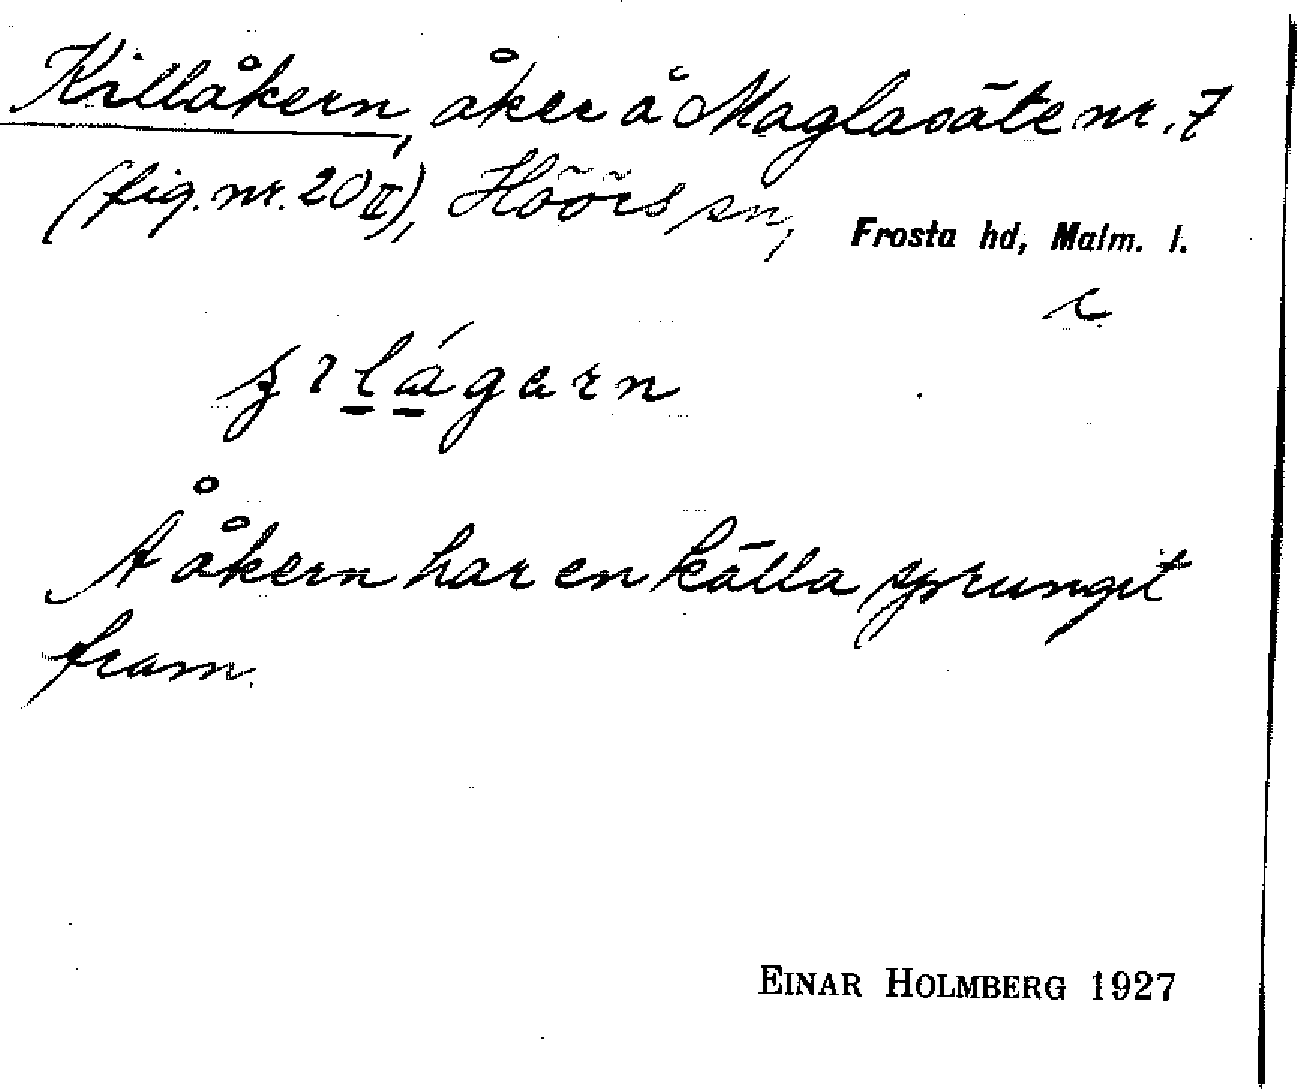 Killåkern, åker å Maglasäte nr. 7
(fig. nr. 20 II), Höörs sn, Frosta hd, Malm. l.
Å åkern har en källa sprungit
fram.
EINAR HOLMBERG 1927